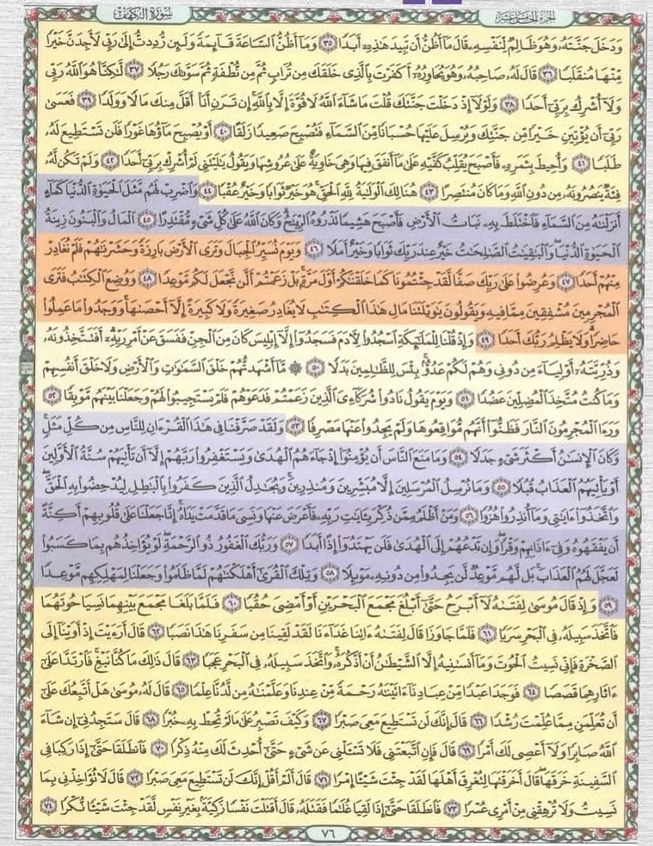 الجزء الخامس عشر
سورة الكهف
وَدَخَلَ جَنَّتَهُۥ وَهُوَ ظَالِمٌ لِّنَفْسِهِۦ قَالَ مَآ أَظُنُّ أَن تَبِيدَ هَٰذِهِۦٓ أَبَدًا ٣٥ وَمَآ أَظُنُّ ٱلسَّاعَةَ قَآئِمَةً وَلَئِن رُّدِدتُّ إِلَىٰ رَبِّى لَأَجِدَنَّ خَيْرًا
مِّنْهَا مُنقَلَبًا ٣٦ قَالَ لَهُۥ صَاحِبُهُۥ وَهُوَ يُحَاوِرُهُۥٓ أَكَفَرْتَ بِٱلَّذِى خَلَقَكَ مِن تُرَابٍ ثُمَّ مِن نُّطْفَةٍ ثُمَّ سَوَّىٰكَ رَجُلًا ٣٧ لَّٰكِنَّا۠ هُوَ ٱللَّهُ رَبِّى
وَلَآ أُشْرِكُ بِرَبِّىٓ أَحَدًا ٣٨ وَلَوْلَآ إِذْ دَخَلْتَ جَنَّتَكَ قُلْتَ مَا شَآءَ ٱللَّهُ لَا قُوَّةَ إِلَّا بِٱللَّهِ إِن تَرَنِ أَنَا۠ أَقَلَّ مِنكَ مَالًا وَوَلَدًا ٣٩ فَعَسَىٰ
رَبِّىٓ أَن يُؤْتِيَنِ خَيْرًا مِّن جَنَّتِكَ وَيُرْسِلَ عَلَيْهَا حُسْبَانًا مِّنَ ٱلسَّمَآءِ فَتُصْبِحَ صَعِيدًا زَلَقًا ٤٠ أَوْ يُصْبِحَ مَآؤُهَا غَوْرًا فَلَن تَسْتَطِيعَ لَهُۥ
طَلَبًا ٤١ وَأُحِيطَ بِثَمَرِهِۦ فَأَصْبَحَ يُقَلِّبُ كَفَّيْهِ عَلَىٰ مَآ أَنفَقَ فِيهَا وَهِىَ خَاوِيَةٌ عَلَىٰ عُرُوشِهَا وَيَقُولُ يَٰلَيْتَنِى لَمْ أُشْرِكْ بِرَبِّىٓ أَحَدًا ٤٢ وَلَمْ تَكُن لَّهُۥ
فِئَةٌ يَنصُرُونَهُۥ مِن دُونِ ٱللَّهِ وَمَا كَانَ مُنتَصِرًا ٤٣ هُنَالِكَ ٱلْوَلَٰيَةُ لِلَّهِ ٱلْحَقِّ هُوَ خَيْرٌ ثَوَابًا وَخَيْرٌ عُقْبًا ٤٤ وَٱضْرِبْ لَهُم مَّثَلَ ٱلْحَيَوٰةِ ٱلدُّنْيَا كَمَآءٍ
أَنزَلْنَٰهُ مِنَ ٱلسَّمَآءِ فَٱخْتَلَطَ بِهِۦ نَبَاتُ ٱلْأَرْضِ فَأَصْبَحَ هَشِيمًا تَذْرُوهُ ٱلرِّيَٰحُ وَكَانَ ٱللَّهُ عَلَىٰ كُلِّ شَىْءٍ مُّقْتَدِرًا ٤٥ ٱلْمَالُ وَٱلْبَنُونَ زِينَةُ
ٱلْحَيَوٰةِ ٱلدُّنْيَا وَٱلْبَٰقِيَٰتُ ٱلصَّٰلِحَٰتُ خَيْرٌ عِندَ رَبِّكَ ثَوَابًا وَخَيْرٌ أَمَلًا ٤٦ وَيَوْمَ نُسَيِّرُ ٱلْجِبَالَ وَتَرَى ٱلْأَرْضَ بَارِزَةً وَحَشَرْنَٰهُمْ فَلَمْ نُغَادِرْ
مِنْهُمْ أَحَدًا ٤٧ وَعُرِضُوا۟ عَلَىٰ رَبِّكَ صَفًّا لَّقَدْ جِئْتُمُونَا كَمَا خَلَقْنَٰكُمْ أَوَّلَ مَرَّةٍۭ بَلْ زَعَمْتُمْ أَلَّن نَّجْعَلَ لَكُم مَّوْعِدًا ٤٨ وَوُضِعَ ٱلْكِتَٰبُ فَتَرَى
ٱلْمُجْرِمِينَ مُشْفِقِينَ مِمَّا فِيهِ وَيَقُولُونَ يَٰوَيْلَتَنَا مَالِ هَٰذَا ٱلْكِتَٰبِ لَا يُغَادِرُ صَغِيرَةً وَلَا كَبِيرَةً إِلَّآ أَحْصَىٰهَا وَوَجَدُوا۟ مَا عَمِلُوا۟
حَاضِرًا وَلَا يَظْلِمُ رَبُّكَ أَحَدًا ٤٩ وَإِذْ قُلْنَا لِلْمَلَٰٓئِكَةِ ٱسْجُدُوا۟ لِءَادَمَ فَسَجَدُوٓا۟ إِلَّآ إِبْلِيسَ كَانَ مِنَ ٱلْجِنِّ فَفَسَقَ عَنْ أَمْرِ رَبِّهِۦٓ أَفَتَتَّخِذُونَهُۥ
وَذُرِّيَّتَهُۥٓ أَوْلِيَآءَ مِن دُونِى وَهُمْ لَكُمْ عَدُوٌّۢ بِئْسَ لِلظَّٰلِمِينَ بَدَلًا ٥٠ ۞ مَّآ أَشْهَدتُّهُمْ خَلْقَ ٱلسَّمَٰوَٰتِ وَٱلْأَرْضِ وَلَا خَلْقَ أَنفُسِهِمْ
وَمَا كُنتُ مُتَّخِذَ ٱلْمُضِلِّينَ عَضُدًا ٥١ وَيَوْمَ يَقُولُ نَادُوا۟ شُرَكَآءِىَ ٱلَّذِينَ زَعَمْتُمْ فَدَعَوْهُمْ فَلَمْ يَسْتَجِيبُوا۟ لَهُمْ وَجَعَلْنَا بَيْنَهُم مَّوْبِقًا ٥٢
وَرَءَا ٱلْمُجْرِمُونَ ٱلنَّارَ فَظَنُّوٓا۟ أَنَّهُم مُّوَاقِعُوهَا وَلَمْ يَجِدُوا۟ عَنْهَا مَصْرِفًا ٥٣ وَلَقَدْ صَرَّفْنَا فِى هَٰذَا ٱلْقُرْءَانِ لِلنَّاسِ مِن كُلِّ مَثَلٍ
وَكَانَ ٱلْإِنسَٰنُ أَكْثَرَ شَىْءٍ جَدَلًا ٥٤ وَمَا مَنَعَ ٱلنَّاسَ أَن يُؤْمِنُوٓا۟ إِذْ جَآءَهُمُ ٱلْهُدَىٰ وَيَسْتَغْفِرُوا۟ رَبَّهُمْ إِلَّآ أَن تَأْتِيَهُمْ سُنَّةُ ٱلْأَوَّلِينَ
أَوْ يَأْتِيَهُمُ ٱلْعَذَابُ قُبُلًا ٥٥ وَمَا نُرْسِلُ ٱلْمُرْسَلِينَ إِلَّا مُبَشِّرِينَ وَمُنذِرِينَ وَيُجَٰدِلُ ٱلَّذِينَ كَفَرُوا۟ بِٱلْبَٰطِلِ لِيُدْحِضُوا۟ بِهِ ٱلْحَقَّ
وَٱتَّخَذُوٓا۟ ءَايَٰتِى وَمَآ أُنذِرُوا۟ هُزُوًا ٥٦ وَمَنْ أَظْلَمُ مِمَّن ذُكِّرَ بِـَٔايَٰتِ رَبِّهِۦ فَأَعْرَضَ عَنْهَا وَنَسِىَ مَا قَدَّمَتْ يَدَاهُ إِنَّا جَعَلْنَا عَلَىٰ قُلُوبِهِمْ أَكِنَّةً
أَن يَفْقَهُوهُ وَفِىٓ ءَاذَانِهِمْ وَقْرًا وَإِن تَدْعُهُمْ إِلَى ٱلْهُدَىٰ فَلَن يَهْتَدُوٓا۟ إِذًا أَبَدًا ٥٧ وَرَبُّكَ ٱلْغَفُورُ ذُو ٱلرَّحْمَةِ لَوْ يُؤَاخِذُهُم بِمَا كَسَبُوا۟
لَعَجَّلَ لَهُمُ ٱلْعَذَابَ بَل لَّهُم مَّوْعِدٌ لَّن يَجِدُوا۟ مِن دُونِهِۦ مَوْئِلًا ٥٨ وَتِلْكَ ٱلْقُرَىٰٓ أَهْلَكْنَٰهُمْ لَمَّا ظَلَمُوا۟ وَجَعَلْنَا لِمَهْلِكِهِم مَّوْعِدًا
٥٩ وَإِذْ قَالَ مُوسَىٰ لِفَتَىٰهُ لَآ أَبْرَحُ حَتَّىٰٓ أَبْلُغَ مَجْمَعَ ٱلْبَحْرَيْنِ أَوْ أَمْضِىَ حُقُبًا ٦٠ فَلَمَّا بَلَغَا مَجْمَعَ بَيْنِهِمَا نَسِيَا حُوتَهُمَا
فَٱتَّخَذَ سَبِيلَهُۥ فِى ٱلْبَحْرِ سَرَبًا ٦١ فَلَمَّا جَاوَزَا قَالَ لِفَتَىٰهُ ءَاتِنَا غَدَآءَنَا لَقَدْ لَقِينَا مِن سَفَرِنَا هَٰذَا نَصَبًا ٦٢ قَالَ أَرَءَيْتَ إِذْ أَوَيْنَآ إِلَى
ٱلصَّخْرَةِ فَإِنِّى نَسِيتُ ٱلْحُوتَ وَمَآ أَنسَىٰنِيهُ إِلَّا ٱلشَّيْطَٰنُ أَنْ أَذْكُرَهُۥ وَٱتَّخَذَ سَبِيلَهُۥ فِى ٱلْبَحْرِ عَجَبًا ٦٣ قَالَ ذَٰلِكَ مَا كُنَّا نَبْغِ فَٱرْتَدَّا عَلَىٰٓ
ءَاثَارِهِمَا قَصَصًا ٦٤ فَوَجَدَا عَبْدًا مِّنْ عِبَادِنَآ ءَاتَيْنَٰهُ رَحْمَةً مِّنْ عِندِنَا وَعَلَّمْنَٰهُ مِن لَّدُنَّا عِلْمًا ٦٥ قَالَ لَهُۥ مُوسَىٰ هَلْ أَتَّبِعُكَ عَلَىٰٓ
أَن تُعَلِّمَنِ مِمَّا عُلِّمْتَ رُشْدًا ٦٦ قَالَ إِنَّكَ لَن تَسْتَطِيعَ مَعِىَ صَبْرًا ٦٧ وَكَيْفَ تَصْبِرُ عَلَىٰ مَا لَمْ تُحِطْ بِهِۦ خُبْرًا ٦٨ قَالَ سَتَجِدُنِىٓ إِن شَآءَ
ٱللَّهُ صَابِرًا وَلَآ أَعْصِى لَكَ أَمْرًا ٦٩ قَالَ فَإِنِ ٱتَّبَعْتَنِى فَلَا تَسْـَٔلْنِى عَن شَىْءٍ حَتَّىٰٓ أُحْدِثَ لَكَ مِنْهُ ذِكْرًا ٧٠ فَٱنطَلَقَا حَتَّىٰٓ إِذَا رَكِبَا فِى
ٱلسَّفِينَةِ خَرَقَهَا قَالَ أَخَرَقْتَهَا لِتُغْرِقَ أَهْلَهَا لَقَدْ جِئْتَ شَيْـًٔا إِمْرًا ٧١ قَالَ أَلَمْ أَقُلْ إِنَّكَ لَن تَسْتَطِيعَ مَعِىَ صَبْرًا ٧٢ قَالَ لَا تُؤَاخِذْنِى بِمَا
نَسِيتُ وَلَا تُرْهِقْنِى مِنْ أَمْرِى عُسْرًا ٧٣ فَٱنطَلَقَا حَتَّىٰٓ إِذَا لَقِيَا غُلَٰمًا فَقَتَلَهُۥ قَالَ أَقَتَلْتَ نَفْسًا زَكِيَّةًۢ بِغَيْرِ نَفْسٍ لَّقَدْ جِئْتَ شَيْـًٔا نُّكْرًا ٧٤
٧٦